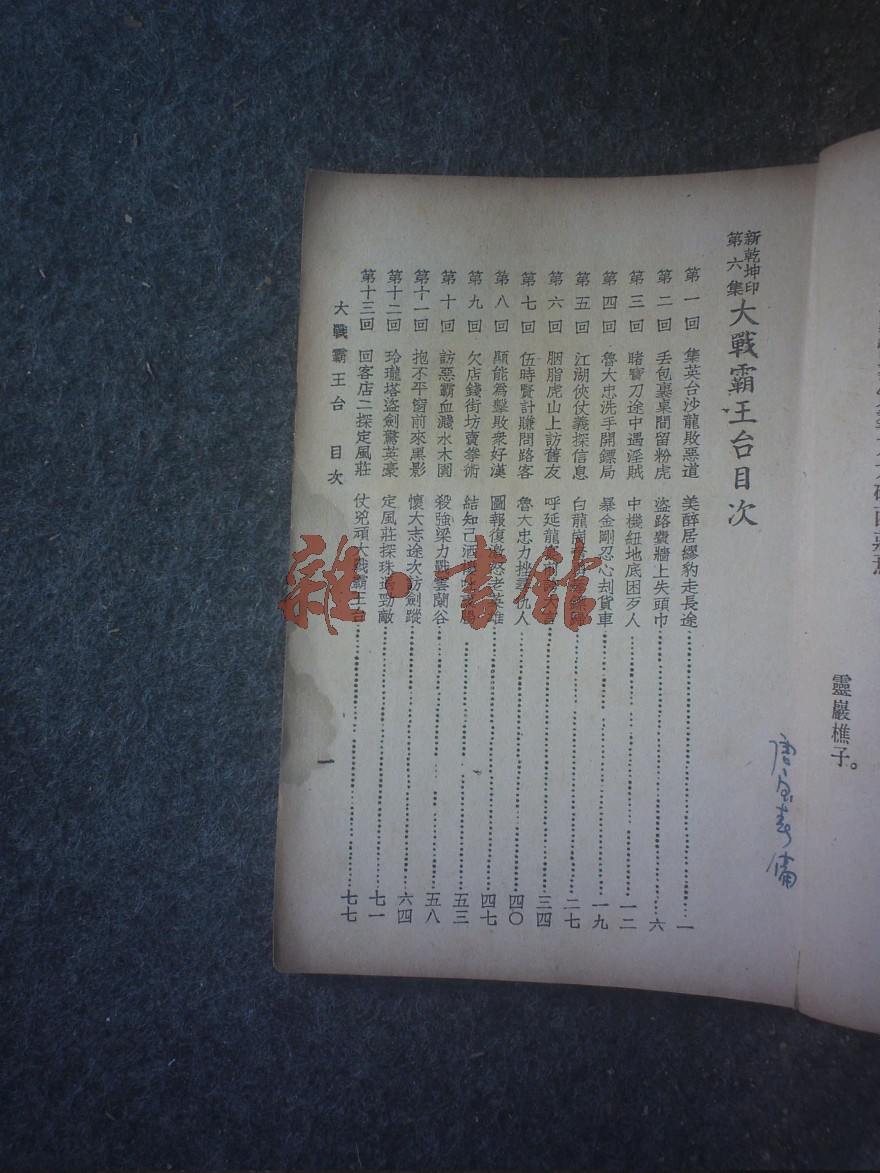 靈巖樵子。
新乾坤印
第六集
大戰霸王台目次
第一回 集英台沙龍敗惡道 美醉居繆豹走長途 一
第二回 丢包裹桌間留粉虎 盜路費牆上失頭巾 六
第三回 賭寶刀途中遇淫賊 中機紐地底困歹人 一二
第四回 魯大忠洗手開鏢局 暴金剛忍心刦貨車 一九
第五回 江湖俠仗義探信息 白龍崗 二七
第六回 胭脂虎山上訪舊友 呼延龍 三四
第七回 伍時賢計賺問路客 魯大忠力挫 仇人 四〇
第八回 顯能爲擊敗衆好漢 圖報復激怒老英雄 四七
第九回 欠店錢街坊賣拳術 結知己酒 五三
第十回 訪惡霸血濺水木園 殺強梁力戰雲蘭谷 五八
第十一回 抱不平窗前來黑影 懷大志途次訪劍蹤 六四
第十二回 玲瓏塔盜劍驚英豪 定風莊探珠遇勁敵 七一
第十三回 回客店二探定風莊 仗兇頑大戰霸王台 七七
大戰霸王台 目次
一
雜·書館